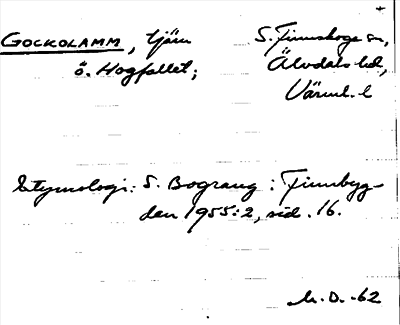 GOCKOLAMM, tjärn S. Finnskoga sn,
ö. Hogfallet; Älvdals hd,
Värml. l
Etymologi: S. Bograng: Finnbyg-
den 1955:2, sid. 16.
M.D. -62